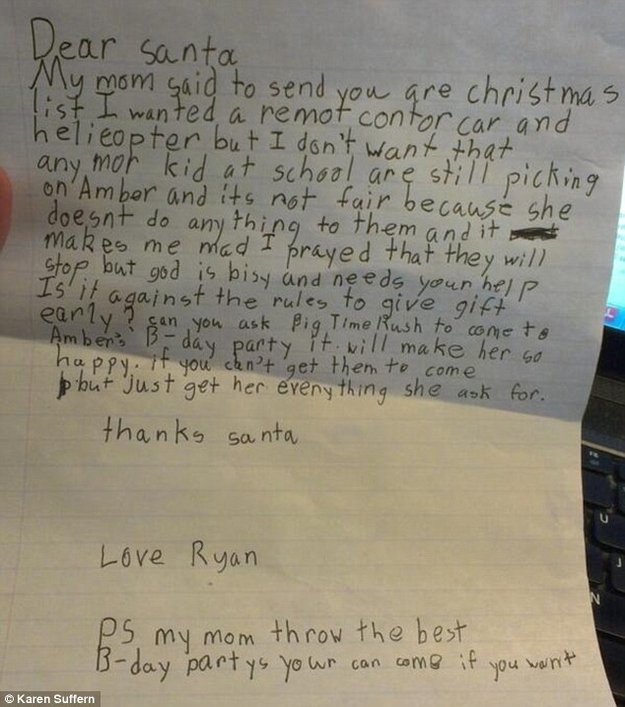 Dear santa
My mom said to send you are christmas
list I wanted a remot contor car and
helicopter but I don't want that
any mor kid at school are still picking
on Amber and its not fair because she
doesnt do any thing to them and it
makes me mad I prayed that they will
stop but god is bisy and needs your help
Is it against the rules to give gift
early? can you ask Big Time Rush to come to
Amber's B-day party it will make her so
happy. if you can't get them to come
but just get her everything she ask for.
thanks santa
Love Ryan
PS my mom throw the best
B-day partys your can come if you want
U
J
N
© Karen Suffern